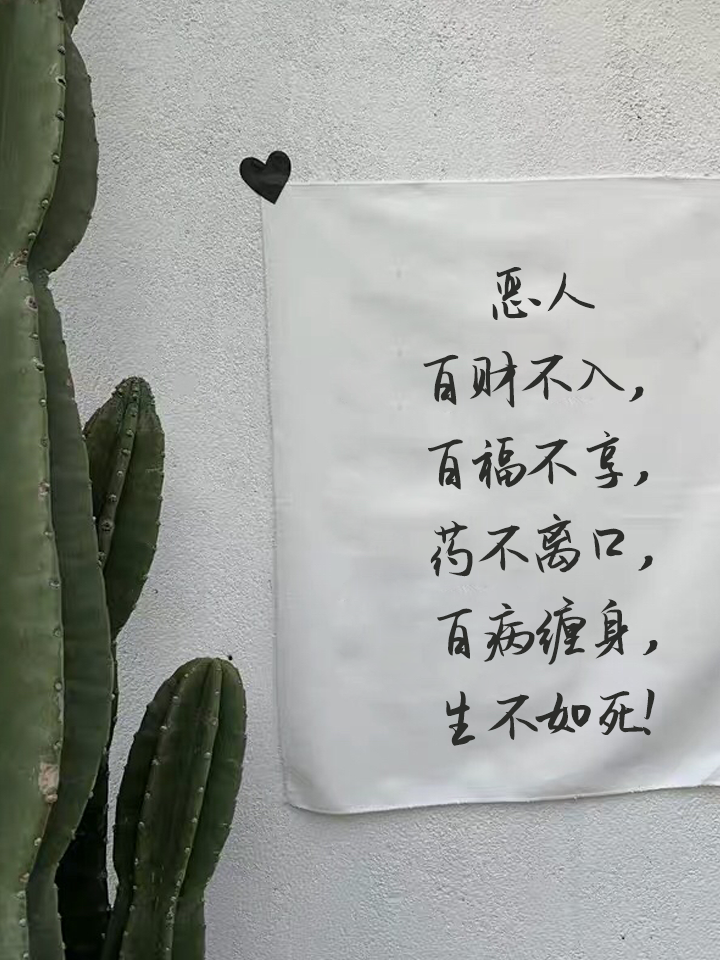 恶人
百财不入，
百福不享，
药不离口，
百病缠身，
生不如死！